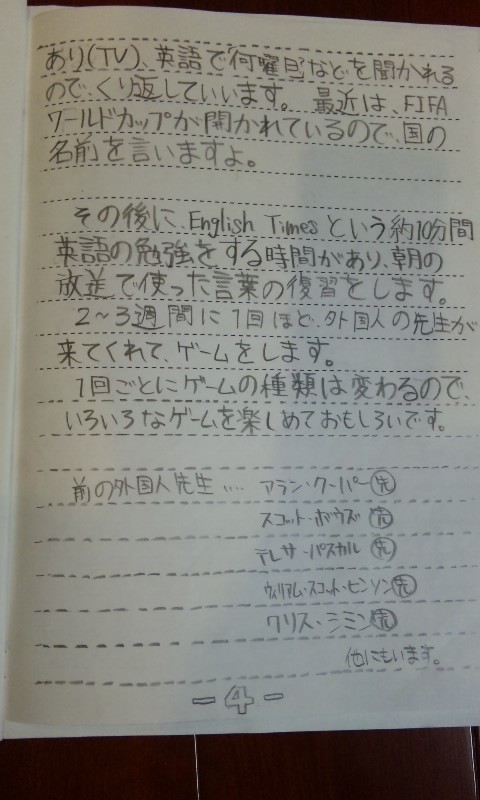 あり(TV)、英語で「何曜日」などを聞かれる
ので、くり返していいます。 最近は、FIFA
ワールドカップが開かれているので、国の
名前を言いますよ。
その後に、English Timesという約10分間
英語の勉強をする時間があり、朝の
放送で使った言葉の復習をします。
2〜3週間に1回ほど、外国人の先生が
来てくれて、ゲームをします。
1回ごとにゲームの種類は変わるので、
いろいろなゲームを楽しめておもしろいです。
前の外国人先生‥‥ アラン・クーパー㊛
スコット・ボウズ
テレサ・パスカル
ウィリアム・スコット・ヒンソン
クリス・シミン
他にもいます。
-4-